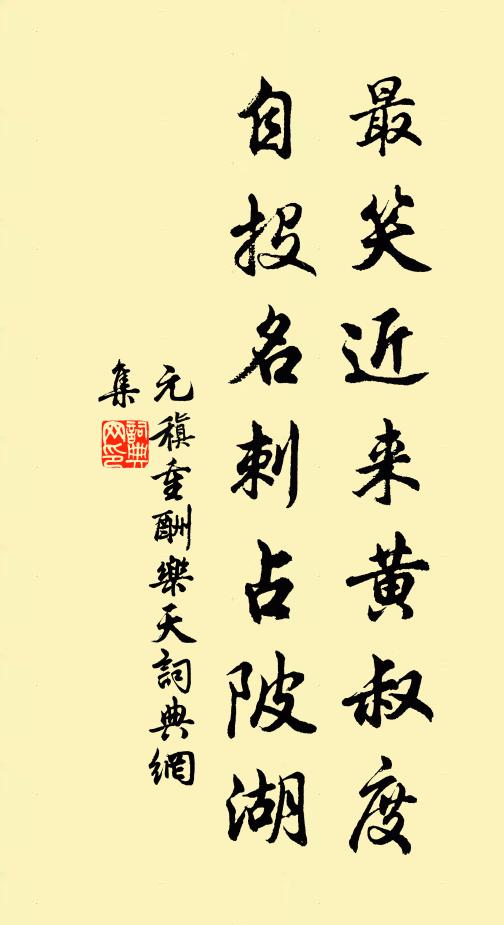 最笑近来黄叔度
自投名刺占陂湖
元稹重酬樂天詞典網
集
詞典
网印